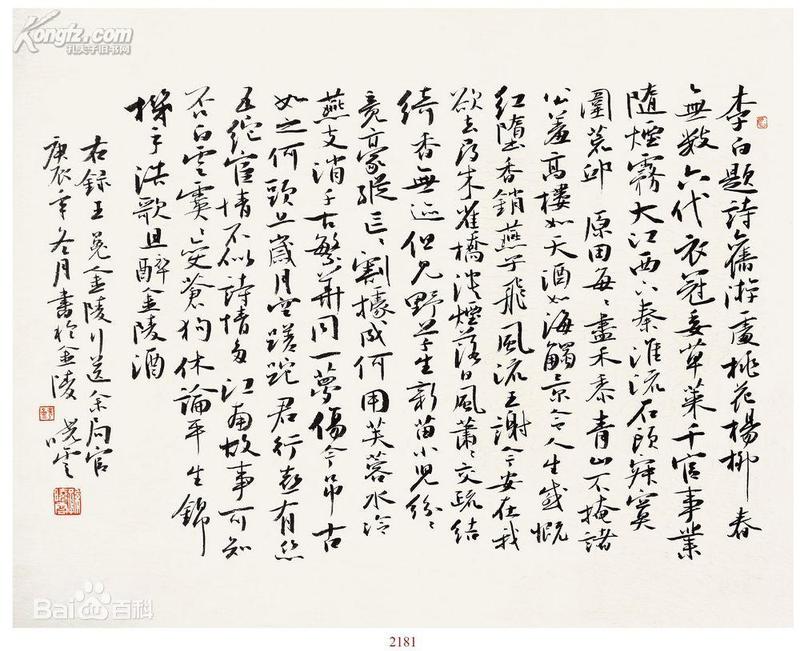 Kongfz.com
孔夫子旧书网
李白題詩舊游處桃花楊柳春
無數六代衣冠委草萊千官事業
隨煙霧大江西下秦淮流石頭寂寞
圍荒邱原田每々盡禾黍青山不掩諸
公羞高樓如天酒如海觸景令人生感慨
紅墮香銷燕子飛風流王謝今安在我
欲去尋朱雀橋淡煙落日風蕭々交疏結
綺香無迹但見野草生新苗小兒紛々
竟豪縱割據成何用芙蓉水冷
燕支消千古繁華同一夢傷今吊古
如之何頭上歲月空蹉跎君行有絲
五紽宦情不似詩情多江南故事可知
否白雲變蒼狗休論平生錦
手歌且醉金陵酒
右録王冕金陵行送余局官
庚辰年冬月書於金陵 曉雲
Bai百科
2181